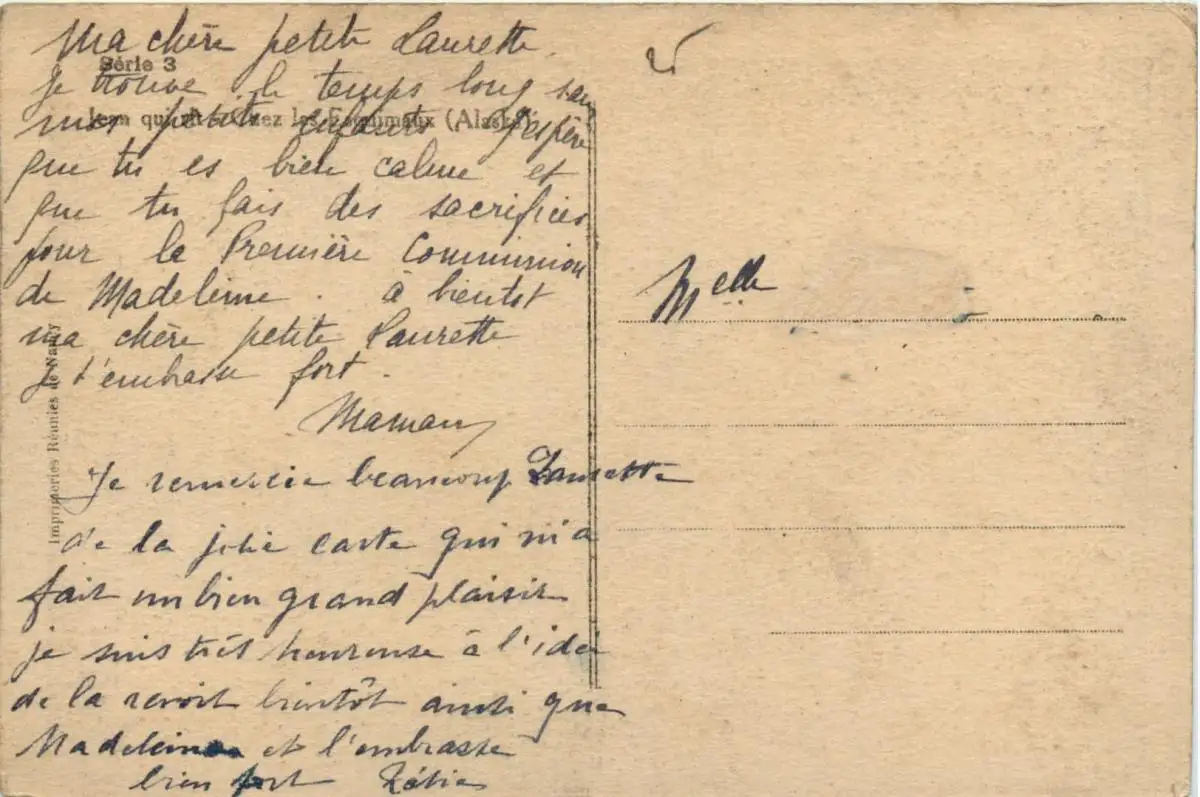 Ma chère petite Laurette.
Série 3
Je trouve le temps long sans
mes petits enfants. J'espère
Jean qui rit. Chez les Esquimaux (Alaska)
que tu es bien calme et
que tu fais des sacrifices
pour la Première Communion
de Madeleine. à bientot
ma chère petite Laurette
Je t'embrasse fort.
Maman
Imprimeries Réunies de Nancy
Je remercie beaucoup Laurette
de la jolie carte qui m'a
fait un bien grand plaisir
je suis très heureuse à l'idée
de la revoir bientôt ainsi que
Madeleine et l'embrasse
bien fort
Melle